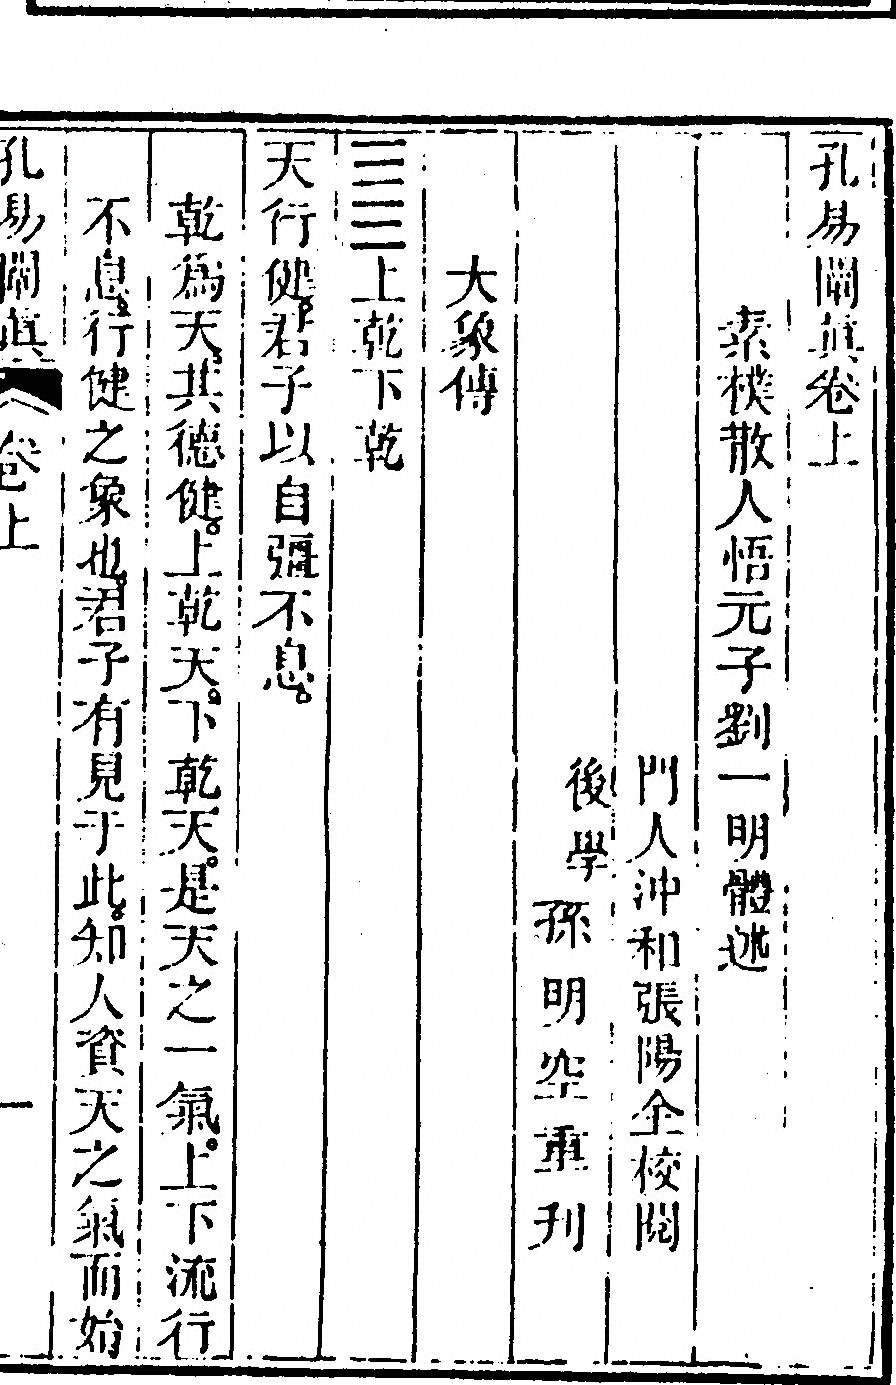 孔易闡眞卷上
素樸散人悟元子劉一明體述
門人沖和張陽全校閱
後學孫明空重刊
大象傳
☰☰上乾下乾
天行健。君子以自彊不息。
乾爲天。其德健。上乾天。下乾天。是天之一氣。上下流行
不息。行健之象也。君子有見于此。知人資天之氣而始
孔易闡眞 卷上 一